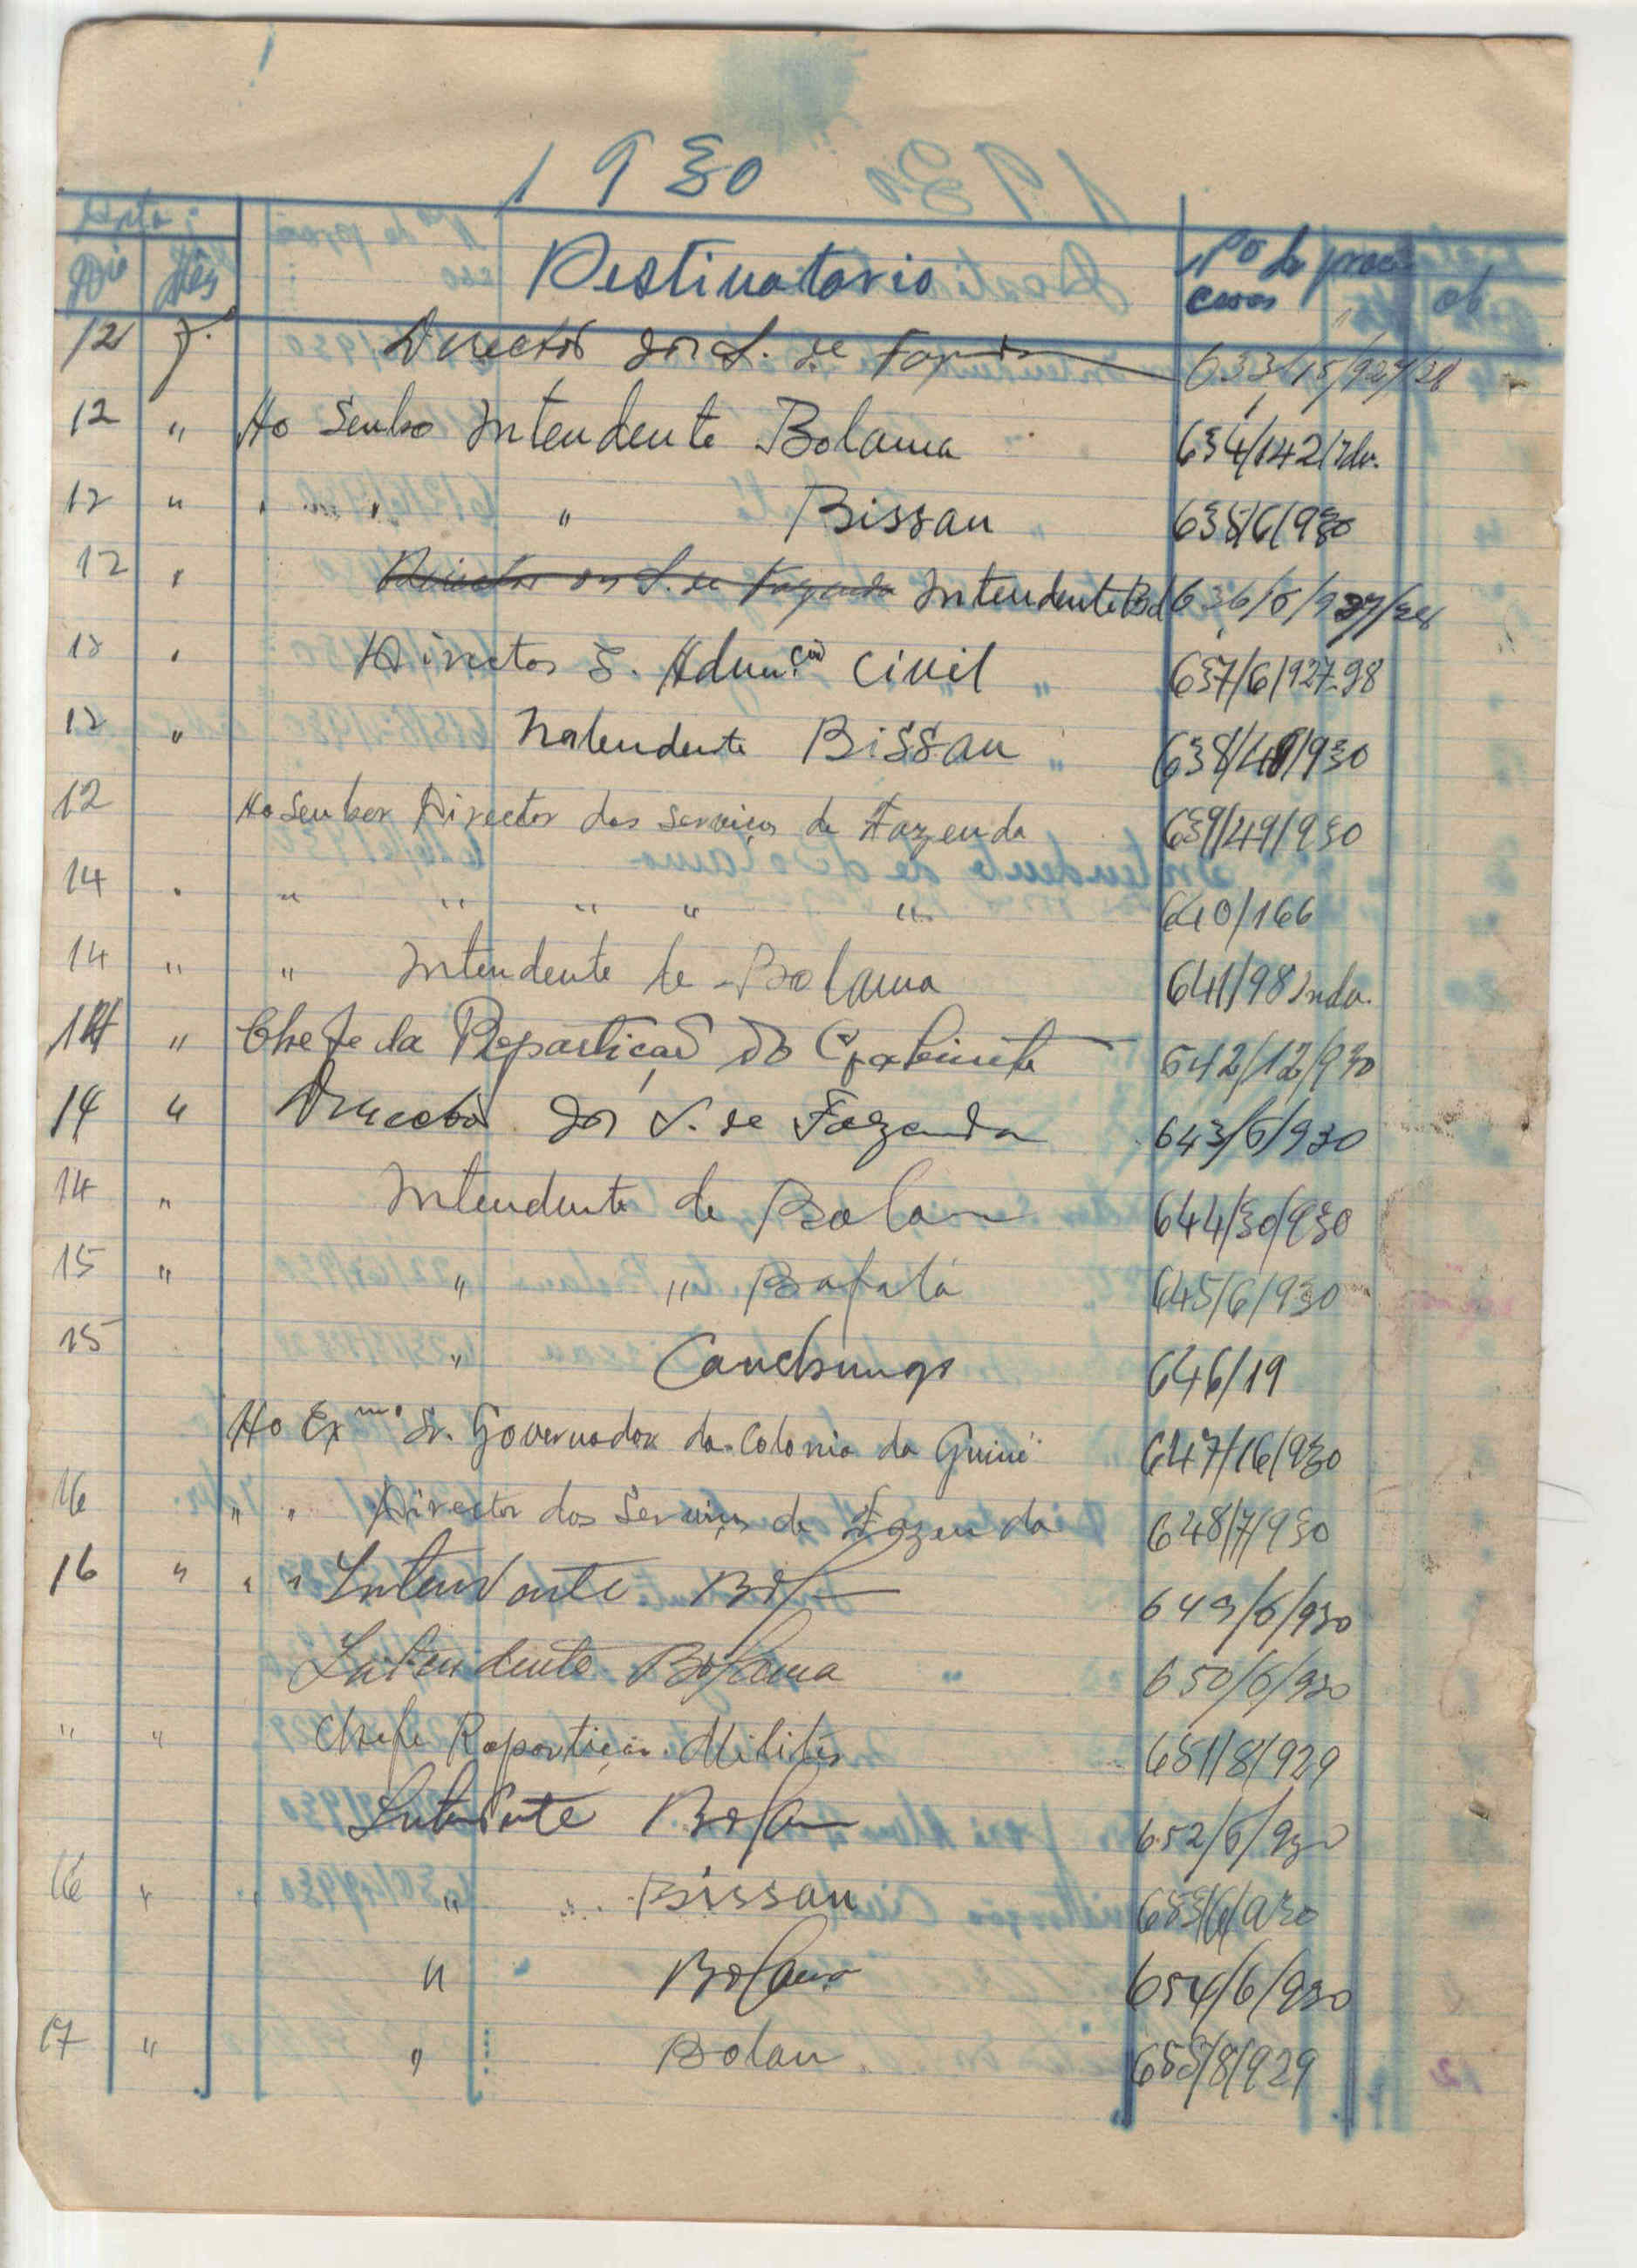 1930
Data
Dia Mês Destinatario Nº de proc ob
cesos
12 J.º Director dos S. de Fazenda 633/15/927/28
12 " Ao Senho Intendente Bolama 634/142/Idv.
12 " " " " Bissau 635/6/930
12 " Director dos S. de Fazenda Intendente Bol 636/6/927/28
12 " Director S. Admn.ção Civil 637/6/927-98
12 " Intendente Bissau 638/48/930
12 Ao Senhor Director dos Serviços de Fazenda 639/49/930
14 " " " " " " 640/166
14 " " Intendente de Bolama 641/98 Indv.
14 " Chefe da Repartição do Gabinete 642/12/930
14 " Director dos S. de Fazenda 643/6/930
14 " Intendente de Bolam 644/30/930
15 " " " Bafatá 645/6/930
15 " Canchungo 646/19
Ao Exmo Sr. Governador da Colonia da Guiné 647/16/930
16 " " Director dos Serviços de Fazenda 648/7/930
16 " " " Intendente Bol 649/6/930
Intendente Bolama 650/6/930
" " Chefe Repartição Militar 651/8/929
Intendente Bolam 652/6/930
16 " " " Bissau 653/6/930
" Bolama 654/6/930
17 " " Bolam 655/8/929